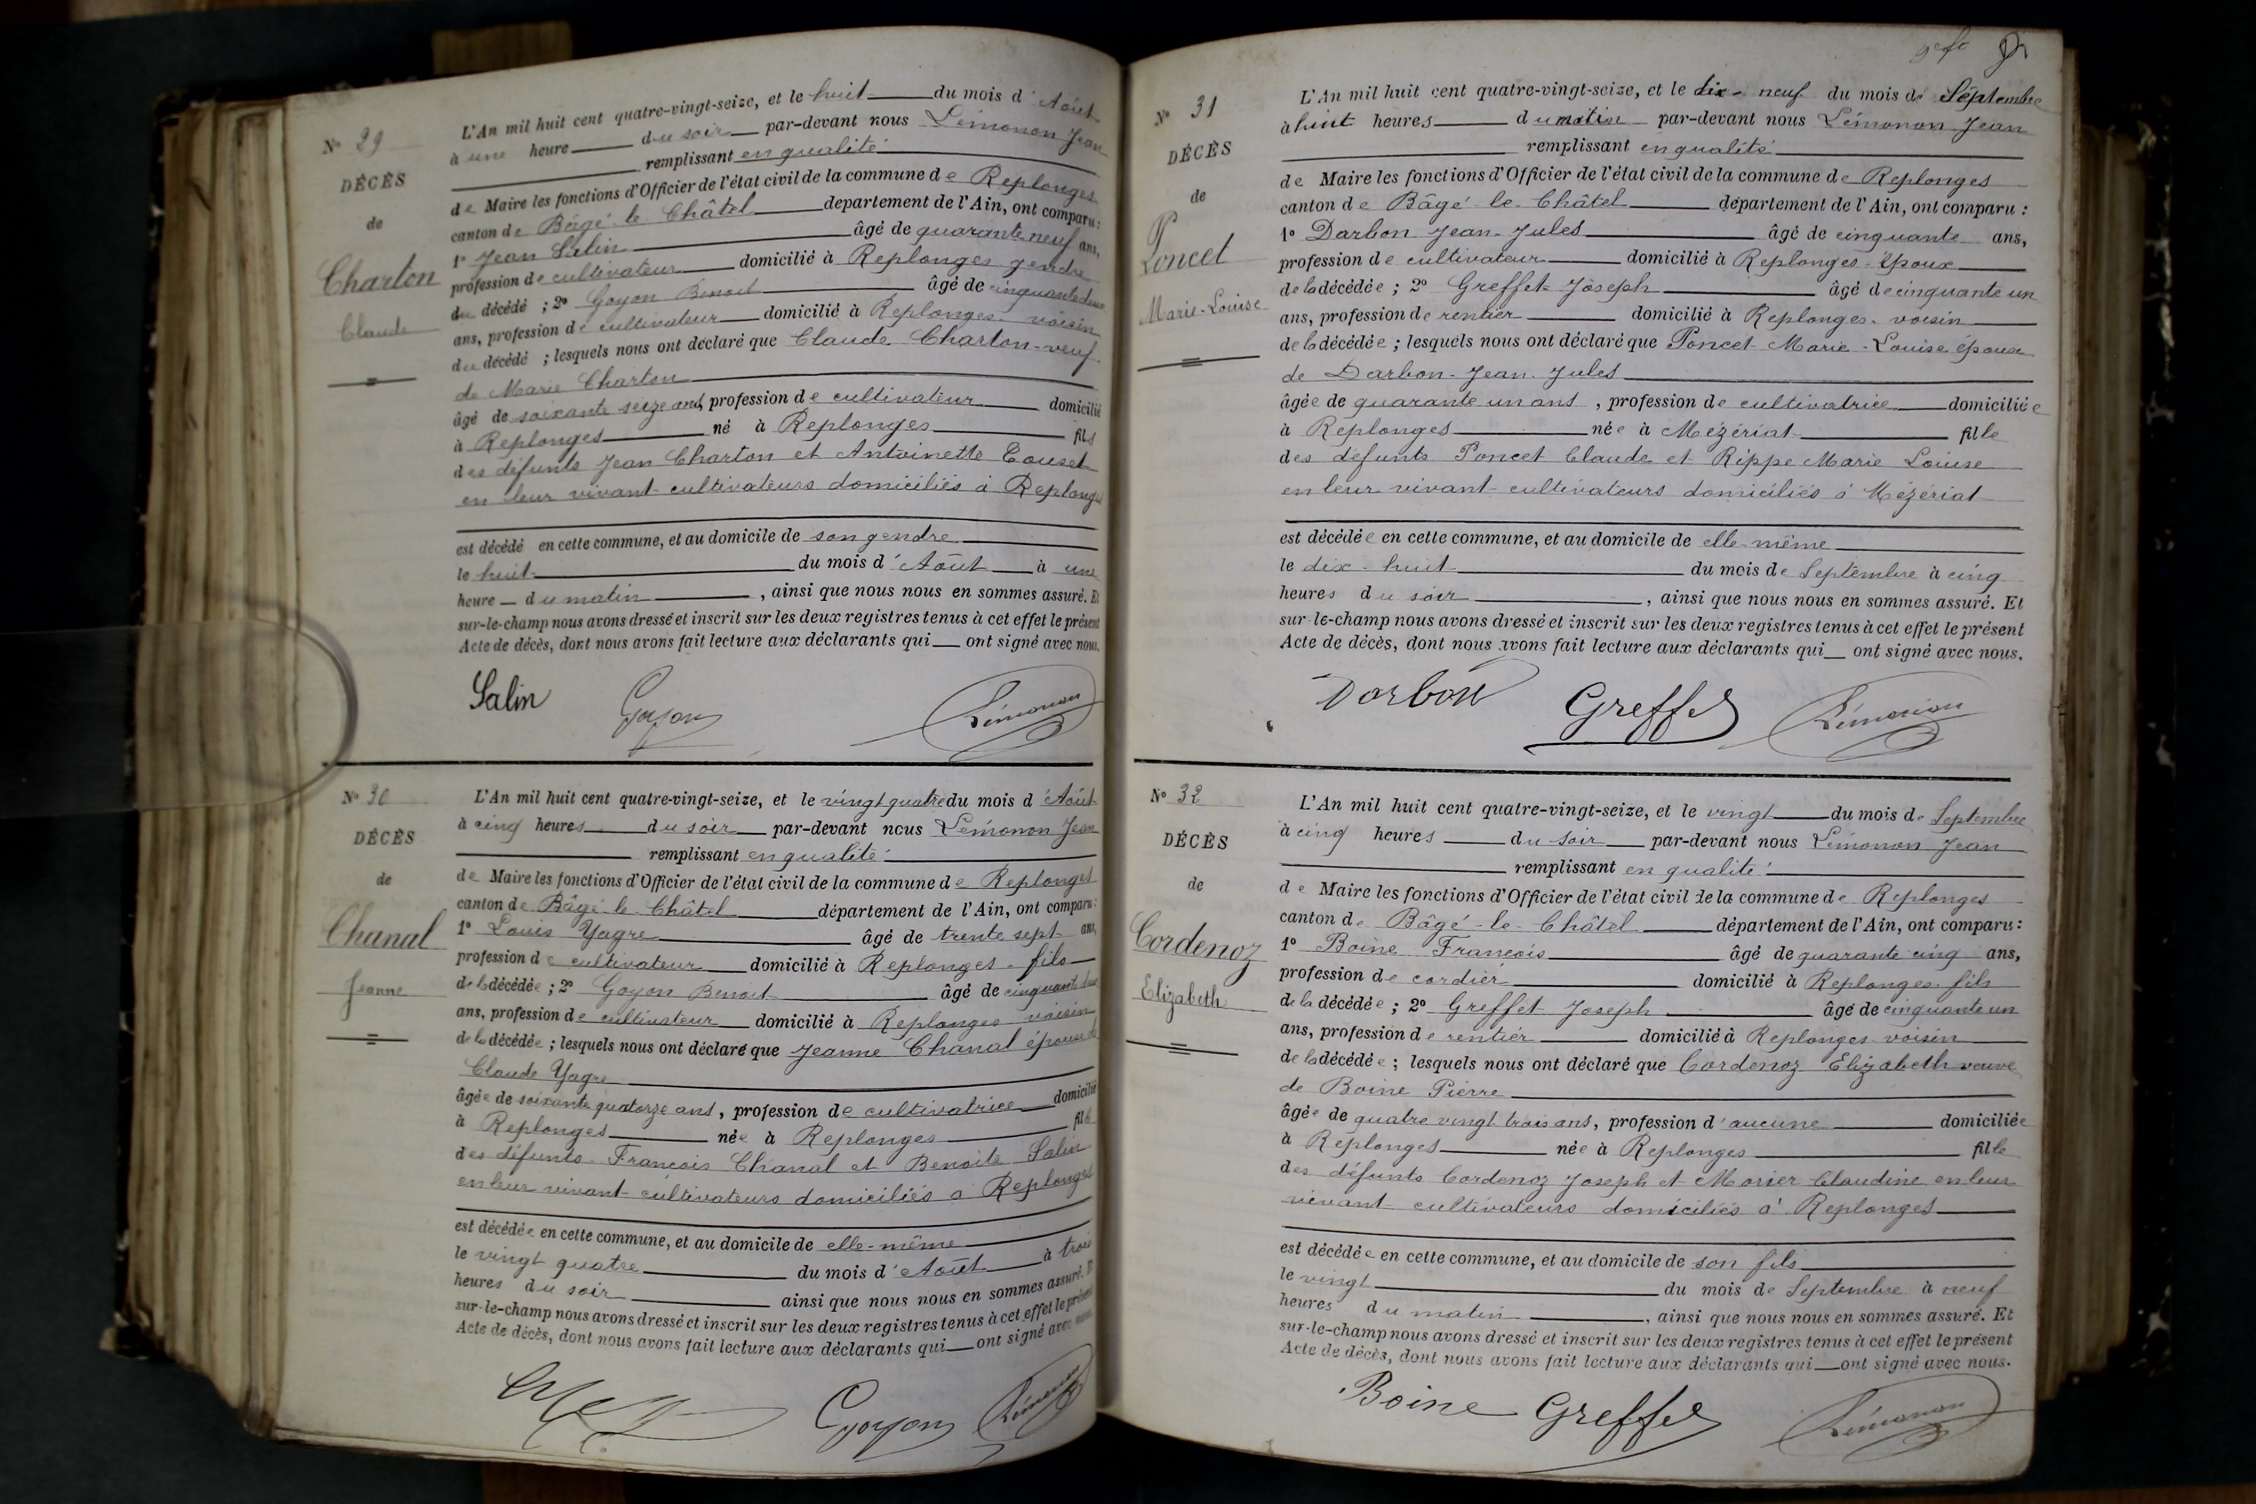 Nº 29
DÉCÈS
de
Charton
Claude
L'An mil huit cent quatre-vingt-seize, et le huit du mois d'Août
à une heure du soir par-devant nous Lémonon Jean
remplissant en qualité
de Maire les fonctions d'Officier de l'état civil de la commune de Replonges
canton de Bâgé-le-Châtel département de l'Ain, ont comparu :
1º Jean Salin âgé de quarante neuf ans,
profession de cultivateur domicilié à Replonges gendre
du décédé ; 2º Goyon Benoit âgé de cinquante deux
ans, profession de cultivateur domicilié à Replonges - voisin
du décédé ; lesquels nous ont déclaré que Claude Charton - veuf
de Marie Charton
âgé de soixante seize ans, profession de cultivateur domicilié
à Replonges né à Replonges fils
des défunts Jean Charton et Antoinette
en leur vivant cultivateurs domiciliés à Replonges
est décédé en cette commune, et au domicile de son gendre
le huit du mois d'Août à une
heure du matin, ainsi que nous nous en sommes assuré. Et
sur-le-champ nous avons dressé et inscrit sur les deux registres tenus à cet effet le présent
Acte de décès, dont nous avons fait lecture aux déclarants qui ont signé avec nous.
Salin Goyon Lémonon
Nº 30
DÉCÈS
de
Chanal
Jeanne
L'An mil huit cent quatre-vingt-seize, et le vingt quatre du mois d'Août
à cinq heures du soir par-devant nous Lémonon Jean
remplissant en qualité
de Maire les fonctions d'Officier de l'état civil de la commune de Replonges
canton de Bâgé-le-Châtel département de l'Ain, ont comparu :
1º Louis Yagre âgé de trente sept ans,
profession de cultivateur domicilié à Replonges - fils
de la décédée ; 2º Goyon Benoit âgé de cinquante deux
ans, profession de cultivateur domicilié à Replonges voisin
de la décédée ; lesquels nous ont déclaré que Jeanne Chanal épouse de
Claude Yagre
âgée de soixante quatorze ans, profession de cultivatrice domicilié
à Replonges née à Replonges fille
des défunts François Chanal et Benoite Salin
en leur vivant cultivateurs domiciliés à Replonges
est décédée en cette commune, et au domicile de elle-même
le vingt quatre du mois d'Août à trois
heures du soir ainsi que nous nous en sommes assuré. Et
sur-le-champ nous avons dressé et inscrit sur les deux registres tenus à cet effet le présent
Acte de décès, dont nous avons fait lecture aux déclarants qui ont signé avec nous.
Goyon Lémonon
Nº 31
DÉCÈS
de
Poncet
Marie-Louise
L'An mil huit cent quatre-vingt-seize, et le dix-neuf du mois de Septembre
à huit heures du matin par-devant nous Lémonon Jean
remplissant en qualité
de Maire les fonctions d'Officier de l'état civil de la commune de Replonges
canton de Bâgé-le-Châtel département de l'Ain, ont comparu :
1º Darbon Jean-Jules âgé de cinquante ans,
profession de cultivateur domicilié à Replonges - Époux
de la décédée ; 2º Greffet Joseph âgé de cinquante un
ans, profession de rentier domicilié à Replonges - voisin
de la décédée ; lesquels nous ont déclaré que Poncet Marie-Louise épouse
de Darbon-Jean-Jules
âgée de quarante un ans, profession de cultivatrice domiciliée
à Replonges née à Mézériat fille
des défunts Poncet Claude et Rippe Marie Louise
en leur vivant cultivateurs domiciliés à Mézériat
est décédée en cette commune, et au domicile de elle-même
le dix-huit du mois de Septembre à cinq
heures du soir, ainsi que nous nous en sommes assuré. Et
sur-le-champ nous avons dressé et inscrit sur les deux registres tenus à cet effet le présent
Acte de décès, dont nous avons fait lecture aux déclarants qui ont signé avec nous.
Darbon Greffet Lémonon
Nº 32
DÉCÈS
de
Cordenoz
Elizabeth
L'An mil huit cent quatre-vingt-seize, et le vingt du mois de Septembre
à cinq heures du soir par-devant nous Lémonon Jean
remplissant en qualité
de Maire les fonctions d'Officier de l'état civil de la commune de Replonges
canton de Bâgé-le-Châtel département de l'Ain, ont comparu :
1º Boine François âgé de quarante cinq ans,
profession de cordier domicilié à Replonges fils
de la décédée ; 2º Greffet Joseph âgé de cinquante un
ans, profession de rentier domicilié à Replonges voisin
de la décédée ; lesquels nous ont déclaré que Cordenoz Elizabeth veuve
de Boine Pierre
âgée de quatre vingt trois ans, profession d'aucune domiciliée
à Replonges née à Replonges fille
des défunts Cordenoz Joseph et Morier Claudine en leur
vivant cultivateurs domiciliés à Replonges
est décédée en cette commune, et au domicile de son fils
le vingt du mois de Septembre à neuf
heures du matin, ainsi que nous nous en sommes assuré. Et
sur-le-champ nous avons dressé et inscrit sur les deux registres tenus à cet effet le présent
Acte de décès, dont nous avons fait lecture aux déclarants qui ont signé avec nous.
Boine Greffet Lémonon